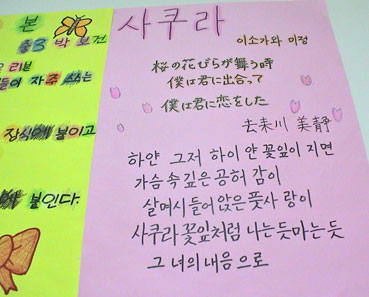 본
중3 박 보건
은 리본
들이 자주 쓰는
장식에 붙이고
붙인다.
사쿠라
이소가와 미정
桜の花びらが舞う時
僕は君に出会って
僕は君に恋をした
去来川 美靜
하얀 그저 하이 얀 꽃잎이 지면
가슴속 깊은 공허 감이
살며시 들어 앉은 풋사 랑이
사쿠라 꽃잎처럼 나는 듯 마는 듯
그 녀의 내음 으로